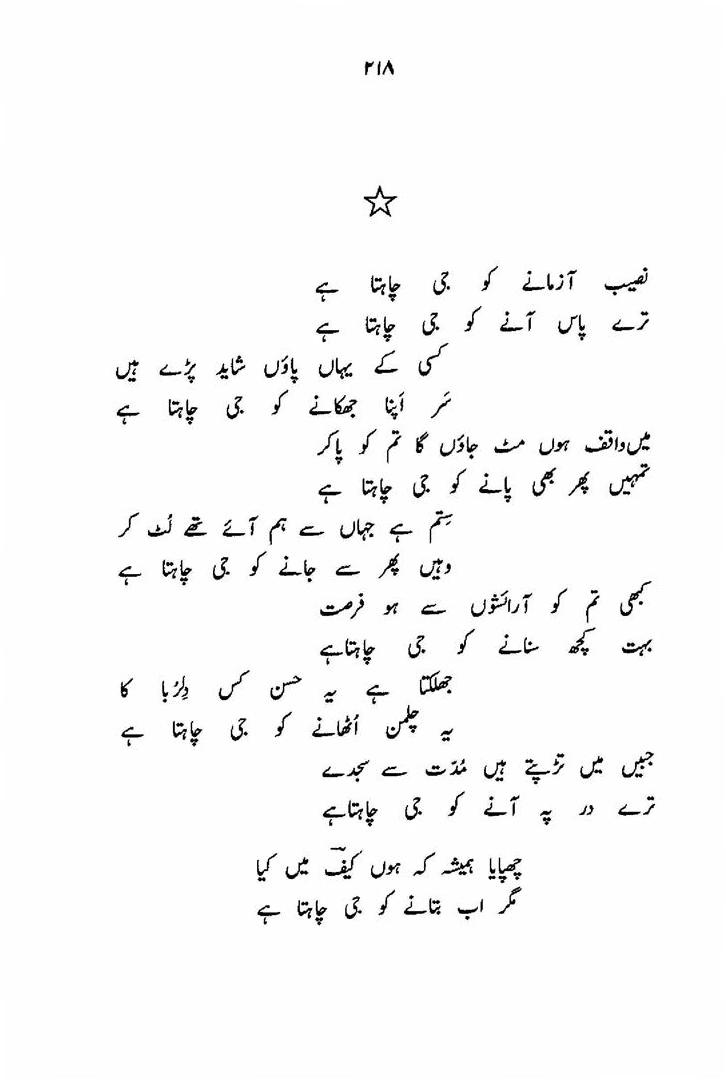 ۲۱۸
نصیب آزمانے کو جی چاہتا ہے
ترے پاس آنے کو جی چاہتا ہے
کسی کے یہاں پاؤں شاید پڑے ہیں
سَر اَپنا جھکانے کو جی چاہتا ہے
میں واقف ہوں مٹ جاؤں گا تم کو پاکر
تمہیں پھر بھی پانے کو جی چاہتا ہے
سِتم ہے جہاں سے ہم آئے تھے لُٹ کر
وہیں پھر سے جانے کو جی چاہتا ہے
کبھی تم کو آرائشوں سے ہو فرصت
بہت کچھ سنانے کو جی چاہتاہے
جھلکتا ہے یہ حسن کس دِلرُبا کا
یہ چلمن اُٹھانے کو جی چاہتا ہے
جبیں میں تڑپتے ہیں مُدّت سے سجدے
ترے در پہ آنے کو جی چاہتاہے
چھپایا ہمیشہ کہ ہوں کیفؔ میں کیا
مگر اب بتانے کو جی چاہتا ہے